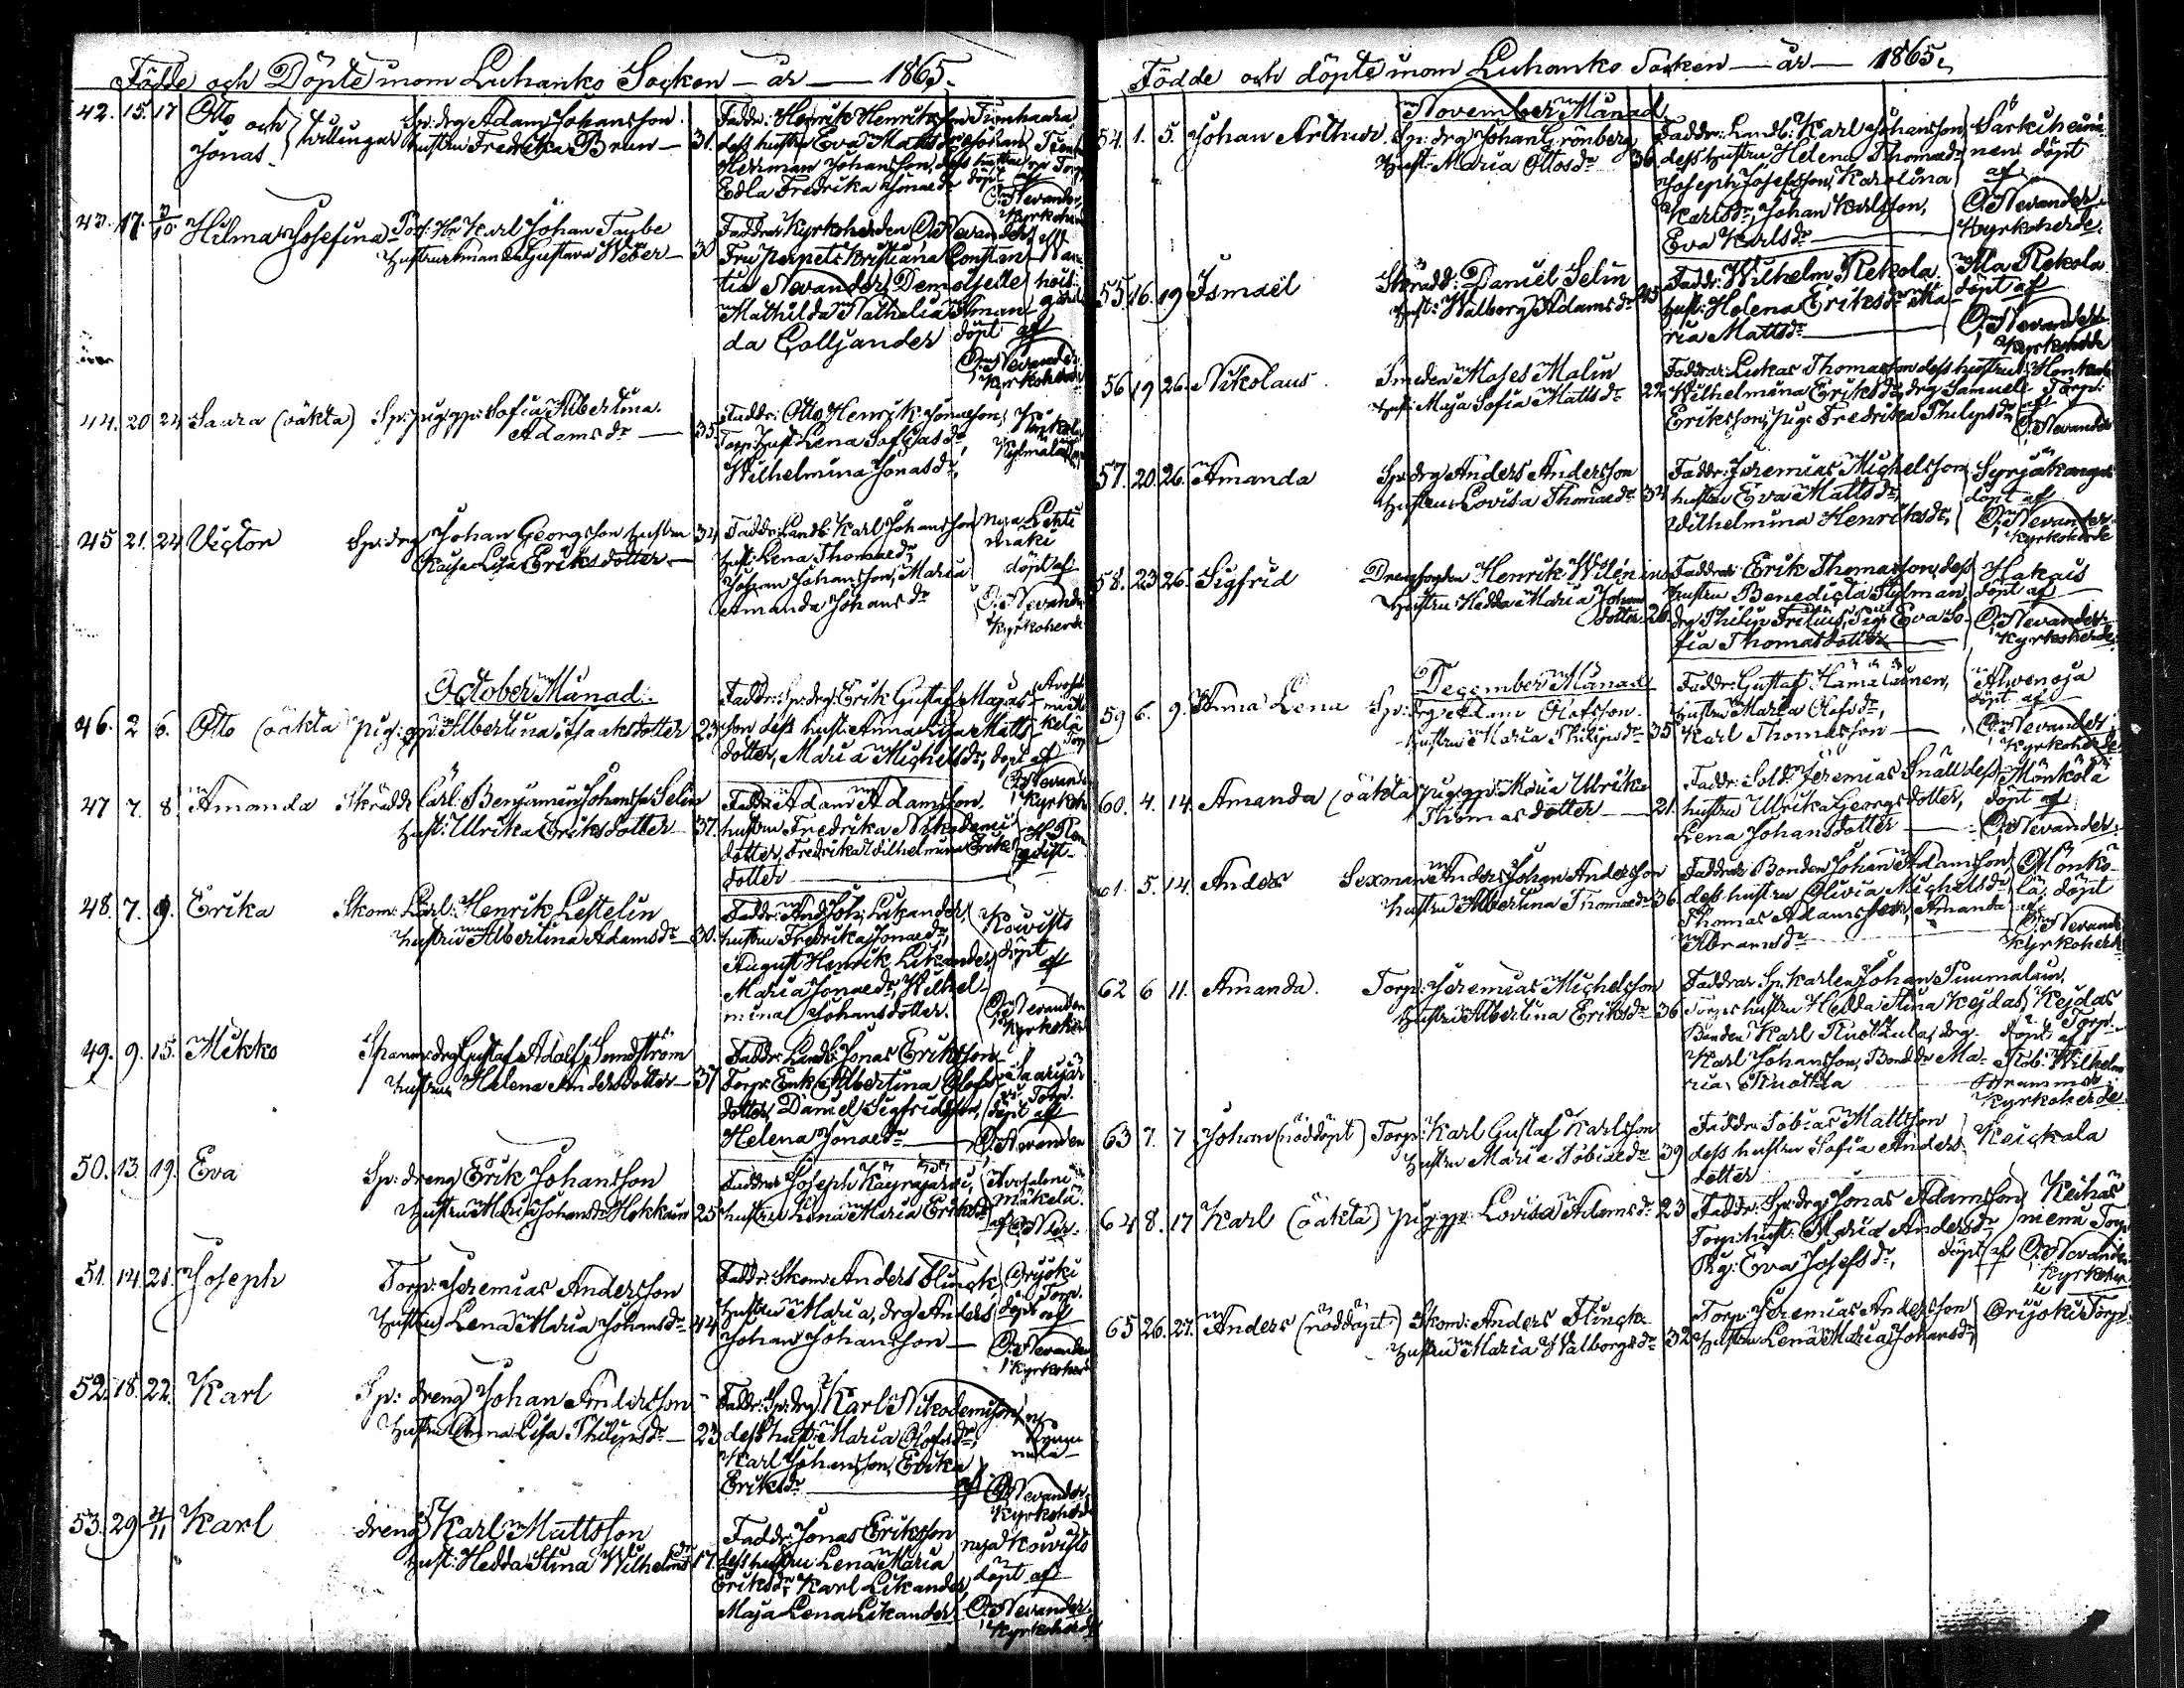 Födde och Döpte inom Luhanko Socken — år — 1865.
42. 15. 17 Otto och Jonas } tvillingar Sp: drg Adam Johansson
hustru Fredrika Brun — 31.
Faddr: Henrik Henriksson
dess hustru Eva Mattsdr, Johan
Herman Johansson, dess hustru
Edla Fredrika Jonaedr döpt af
O: Nevander,
Kyrkoherde
43. 17. Hilma Josefina Karl Johan Taube
hustru Amanda Gustava Weber — 30
Faddrar Kyrkoherden O: Nevander,
Fru Perpetua Kristiana Constan-
tia Nevander, Demoiselle
Mathilda Nathalia Aman-
da Golljander döpt af
O: Nevander
Kyrkoherde
44. 20 24 Saara (oäkta) Sp: pig: gp: Sofia Albertina
Adamsdr — 35.
Faddr: Otto Henrik Jonasson,
Torp: hust: Lena Sofia
Wilhelmina Jonasdr,
45 21. 24 Victor Sp: drg Johan Georgsson hustru 34
Kaisa Lisa Eriksdotter —
Faddr: Landb: Karl Johansson
hust: Lena Thomaedr,
Johan Johansson, Maria
Amanda Johansdr
nya Lehti
mäki
döpt af
O: Nevander
Kyrkoherde
October Månad.
46. 2 6. Otto (oäkta) pig: gp: Albertina Isaaksdotter 23
Faddr: Sp: drg: Erik Gustaf
son dess hust: Anna Lisa Matts
dotter, Maria Michelsdr, döpt af
O: Nevander
Kyrkoh
47 7. 8. Amanda Skrädd: Carl: Benjamin Johansson Selin
Hust: Ulrika Eriksdotter — 37.
Faddr: Adam Adamsson,
hustru Fredrika Nikodemi
dotter, Fredrika Wilhelmina Eriks
dotter
48. 7. 9. Erika Skom: Carl: Henrik Lestelin
hustru Albertina Adamsdr 30.
Faddr: And: Joh: Likander,
hustru Fredrika Jonaedr,
August Henrik Likander,
Maria Jonaedr, Wilhel-
mina Johansdotter.
Kowisto
döpt
af
O: Nevander
Kyrkoher
49. 9. 15. Mikko Gustaf Adolf Sundström
hustru Helena Andersdotter — 37
Faddr: Landb: Jonas Eriksson
Torp: Enk: Albertina Olofs
dotter, Daniel Sigfridsson,
Helena Jonaedr —
Torp.
döpt af
O: Nevander
50. 13. 19. Eva Sp: dreng Erik Johansson
hustru Maria Johansdr Hokkain 25
Faddrar Joseph Käyräjärvi,
hustru Lena Maria Eriksdr
mäkelä.
af O: Nev:
51. 14. 21. Joseph Torp: Jeremias Andersson
hustru Lena Maria Johansdr — 44
Faddr: Skom: Anders Flinck,
hustru Maria, drg Anders
Johan Johansson —
Orijoki
Torp.
döpt af
O: Nevander
Kyrkoher
52. 18. 22. Karl Sp: dreng Johan Andersson
hustru Anna Lisa Philipsdr — 23
Faddr: Sp: drg: Karl Nikodemison
dess hust: Maria Olofsdr,
Karl Johansson, Erika
Eriksdr — af
O: Nevander,
Kyrkoherde
53. 29 4/11 Karl dreng Karl Mattsson
hust: Hedda Stina Wilhelmsdr 17.
Faddr: Jonas Eriksson
dess hustru Lena Maria
Eriksdr, Karl Likander,
Maja Lena Likander
nya Kowisto
döpt af
O: Nevander.
Kyrkoherde
Födde och döpte inom Luhanko Socken — år — 1865.
November Månad
54. 1. 5. Johan Arthur. Sp: drg Johan Grönberg
hust: Maria Ottosdr 36
Faddr: Landb: Karl Johansson,
dess hustru Helena Thomaedr
Joseph Josefsson, Karolina
Karlsdr, Johan Karlsson,
Eva Karlsdr —
Särkiheini-
neni döpt
af
O: Nevander
Kyrkoherde.
55. 16. 19 Ismaël Skrädd: Daniel Selin
hust: Walborg Adamsdr 45
Faddr: Wilhelm Rekola
hust: Helena Eriksdr, Ma-
ria Mattsdr —
Ala Rekola
döpt af
O: Nevander
Kyrkoherde
56 19 26. Nikolaus. Smeden Moses Malin
hust: Maja Sofia Mattsdr 22
Faddrar: Lukas Thomasson dess hustru
Wilhelmina Eriksdr, drg Samuel
Eriksson, pig: Fredrika Philipsdr
Torp:
af
O: Nevander
57. 20. 26. Amanda Sp: drg Anders Andersson
hustru Lovisa Thomaedr 34
Faddr: Jeremias Michelsson
hustru Eva Mattsdr,
Wilhelmina Henriksdr,
Syrjäkangas
döpt af
O: Nevander
Kyrkoherde
58. 23 26. Sigfrid Drengfogden Henrik Wilenius
hustru Hedda Maria Johans
dotter 26.
Faddrar: Erik Thomasson, dess
hustru Benedicta Sylman,
drg Philip Fritius, Pig: Eva So-
fia Thomasdotter
Hakais
döpt af
O: Nevander
Kyrkoherde
December Månad
59 6. 9. Anna Lena Sp: drg Adam Olofsson.
hustru Maria Philipsdr 35
Faddr: Gustaf Hämäläinen,
hustru Maria Olofsdr,
Karl Thomasson —
Ahvenoja
döpt af
O: Nevander
Kyrkoherde
60. 4. 14. Amanda (oäkta) pig: gp: Maria Ulrika
Thomasdotter — 21.
Faddr: Sold: Jeremias Snäll dess
hustru Ulrika Georgsdotter,
Lena Johansdotter —
Mönkölä
döpt af
O: Nevander.
61. 5. 14. Anders Sexman Anders Johan Andersson
hustru Albertina Thomaedr 36
Faddrar Bonden Johan Adamsson,
dess hustru Olivia Michelsdr,
Thomas Adamsson, Amanda
Abramsdr
Mönkö-
lä, döpt
af
O: Nevander
Kyrkoherde
62 6 11. Amanda. Torp: Jeremias Michelsson
hustru Albertina Eriksdr 36
Faddrar Sp. karlen Johan Tuumalain,
Torpar hustru Hedda Stina Keidas,
Bonden Karl Ruokula, drg
Karl Johansson, Bondedr Ma-
ria Ruokula
Keidas
Torp.
döpt af
Tob: Wilhelm
Strammer
Kyrkoherde
63 7. 7 Johan (nöddöpt) Torp: Karl Gustaf Karlsson
hustru Maria Tobiaedr 39
Faddr: Tobias Mattsson
dess hustru Sofia Anders-
dotter
Keickala
64 8. 17 Karl (oäkta) pig: gp: Lovisa Adamsdr 23
Faddr: Sp: drg Jonas Adamsson,
Torp: hust: Maria Andersdr
Pig: Eva Josefsdr,
Keihäs
niemi Torp
döpt af O: Nevander
Kyrkoher
65 26. 27. Anders (nöddöpt.) Skom: Anders Flinck.
hustru Maria Walborgsdr 32
Torp: Jeremias Andersson
hustru Lena Maria Johansdr,
Orijoki Torp.